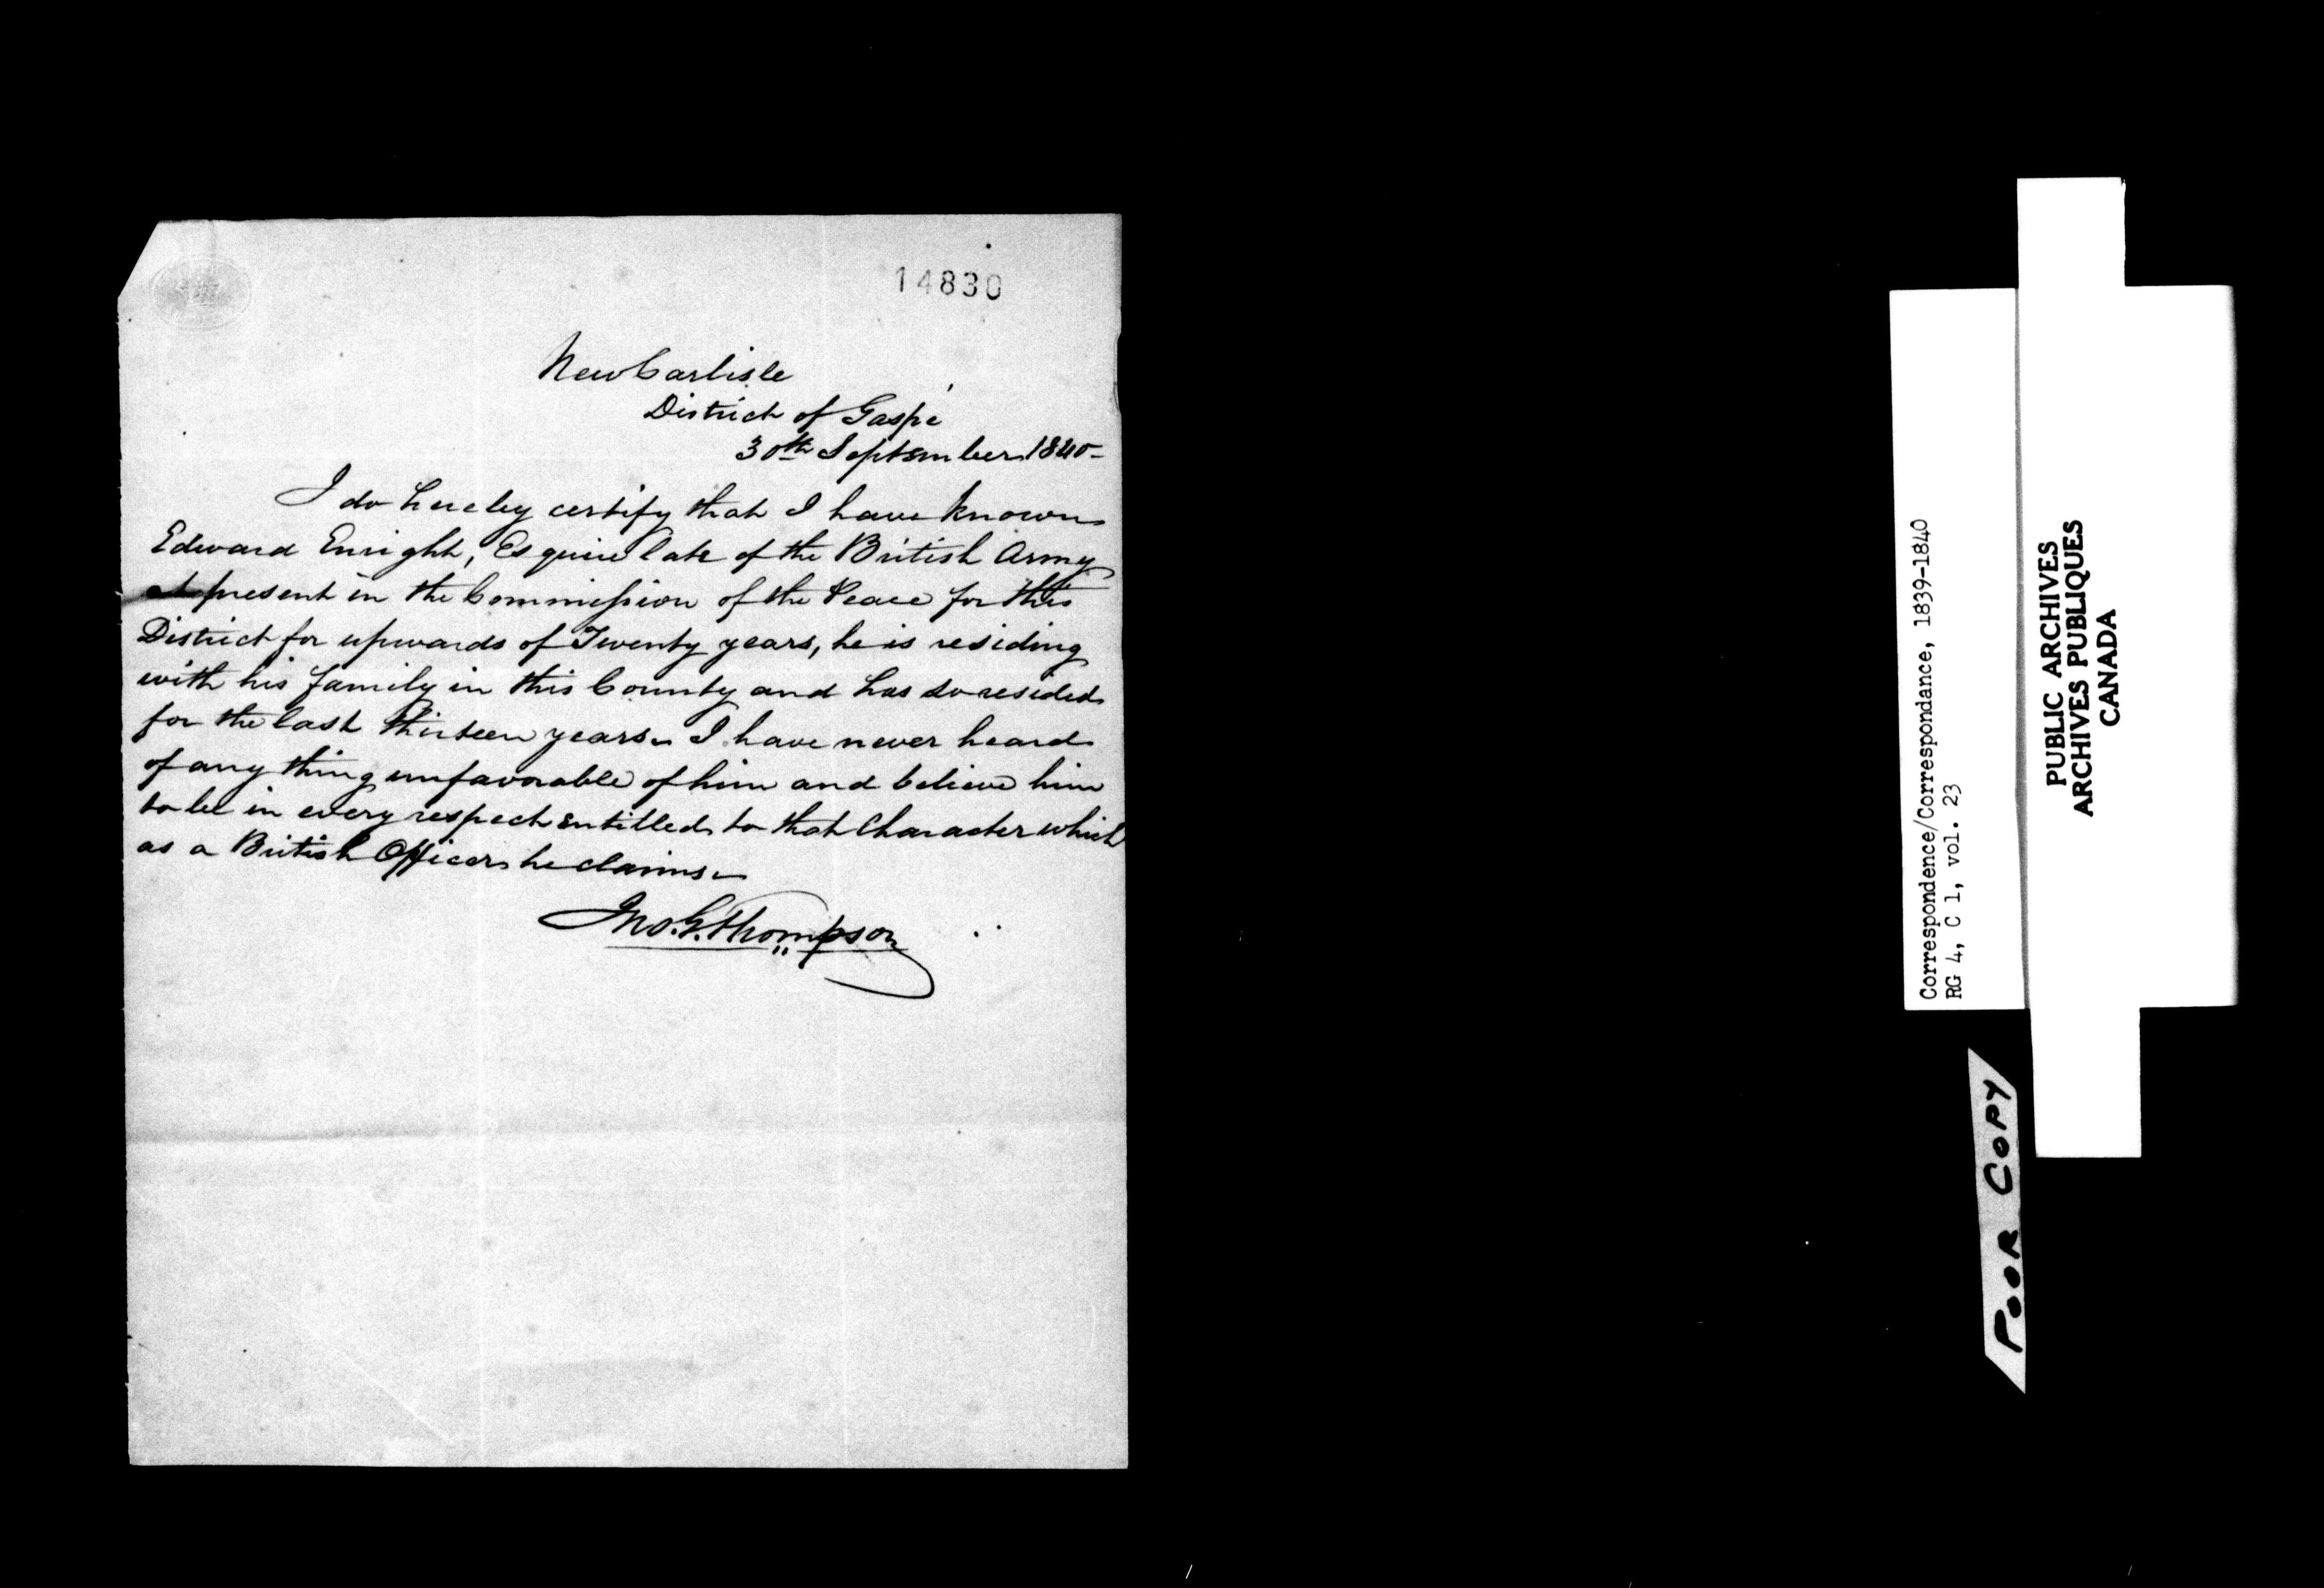 14830
New Carlisle
District of Gaspé
30th September 1840-
I do hereby certify that I have known
Edward Enright, Esquire late of the British Army
at present in the Commission of the Peace for this
District for upwards of Twenty years, he is residing
with his family in this County and has so resided
for the last thirteen years. I have never heard
of any thing unfavorable of him and believe him
to be in every respect entitled to that Character which
as a British Officer he claims.
Jno. G. Thompson
Correspondence/Correspondance, 1839-1840
RG 4, C 1, vol. 23
PUBLIC ARCHIVES
ARCHIVES PUBLIQUES
CANADA
POOR COPY